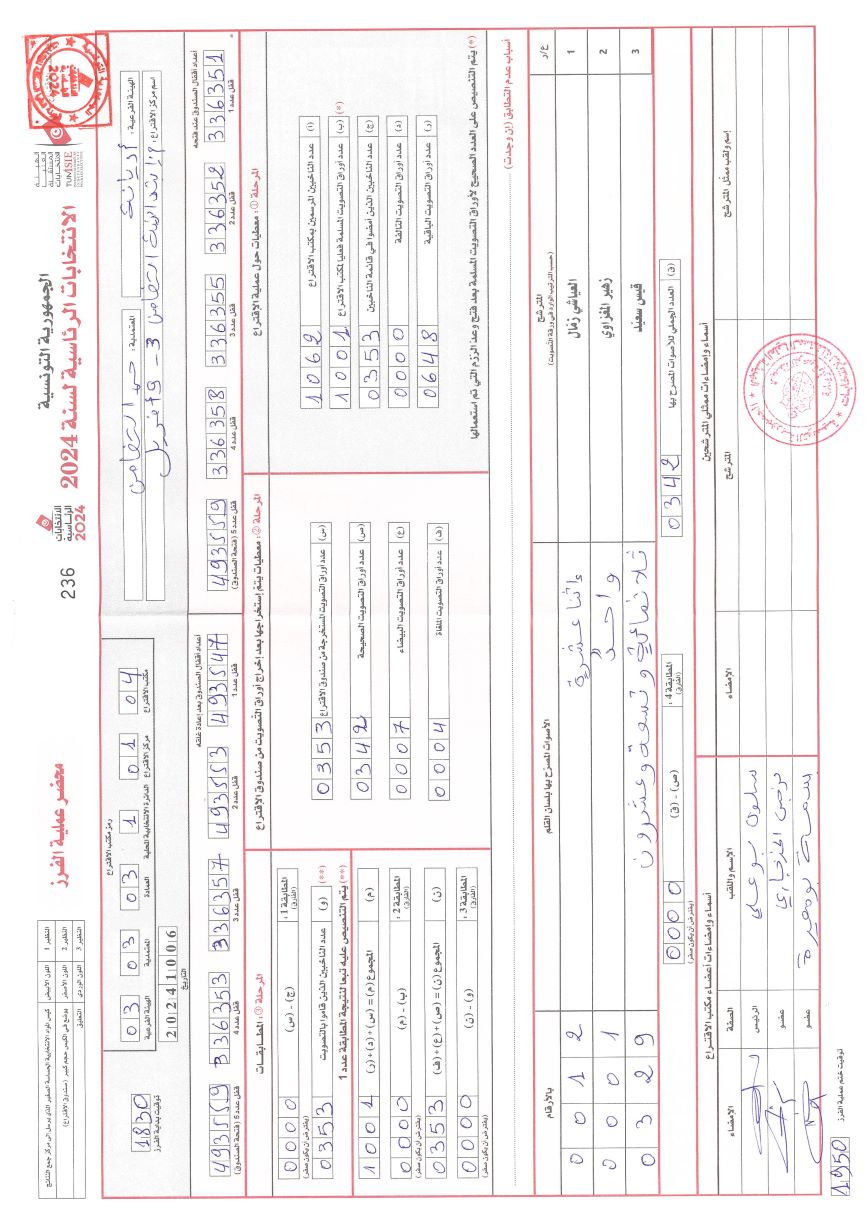 الجمهورية التونسية
الانتخابات الرئاسية لسنة 2024
محضر عملية الفرز
236
الانتخابات
الرئاسية
2024
الهيئة الفرعية : أريانة
المعتمدية : حي التضامن
اسم مركز الاقتراع :
رمز مكتب الاقتراع
03 03 03 1 01 04
الهيئة الفرعية المعتمدية العمادة الدائرة الانتخابية المحلية مركز الاقتراع مكتب الاقتراع
التاريخ
20241006
توقيت بداية الفرز
1830
النظير 1 اللون الأبيض
النظير 2 اللون الأصفر يوضع في الكيس حجم كبير (صندوق الاقتراع)
النظير 3 اللون الوردي التعليق
أعداد أقفال الصندوق عند فتحه
336351 336352 336355 336358 493559
قفل عدد 1 قفل عدد 2 قفل عدد 3 قفل عدد 4 قفل عدد 5 (فتحة الصندوق)
أعداد أقفال الصندوق بعد إعادة غلقه
493547 493553 336357 336353 493559
قفل عدد 1 قفل عدد 2 قفل عدد 3 قفل عدد 4 قفل عدد 5 (فتحة الصندوق)
المرحلة ①: معطيات حول عملية الاقتراع
(أ) عدد الناخبين المرسمين بمكتب الاقتراع 1062
(ب) عدد أوراق التصويت المسلمة فعليا لمكتب الاقتراع (*) 1001
(ج) عدد الناخبين الذين أمضوا في قائمة الناخبين 0353
(د) عدد أوراق التصويت التالفة 0000
(ر) عدد أوراق التصويت الباقية 0648
(*) يتم التنصيص على العدد الصحيح لأوراق التصويت المسلمة بعد فتح وعد الرزم التي تم استعمالها
المرحلة ②: معطيات يتم إستخراجها بعد إخراج أوراق التصويت من صندوق الإقتراع
(س) عدد أوراق التصويت المستخرجة من صندوق الاقتراع 0353
(ص) عدد أوراق التصويت الصحيحة 0342
(ع) عدد أوراق التصويت البيضاء 0007
(ف) عدد أوراق التصويت الملغاة 0004
المرحلة ③: المطابقات
المطابقة 1: (الفارق) (ج) - (س) 0000 (يفترض أن يكون صفر)
(**) يتم التنصيص عليه تبعا لنتيجة المطابقة عدد 1
(**) (و) عدد الناخبين الذين قاموا بالتصويت 0353
(م) المجموع (م) = (س)+(د)+(ر) 1001
المطابقة 2: (الفارق) (ب) - (م) 0000 (يفترض أن يكون صفر)
(ن) المجموع (ن) = (ص)+(ع)+(ف) 0353
المطابقة 3: (الفارق) (و) - (ن) 0000 (يفترض أن يكون صفر)
أسباب عدم التطابق (إن وجدت)
ع/ر المترشح الأصوات المصرّح بها بلسان القلم بالأرقام
(حسب الترتيب الوارد في ورقة التصويت)
1 العياشي زمال إثنا عشرة 0012
2 زهير المغزاوي واحد 0001
3 قيس سعيد ثلاثمائة وتسعة وعشرون 0329
(ق) العدد الجملي للأصوات المصرح بها 0342
المطابقة 4: (الفارق) (ص) - (ق) 0000 (يفترض أن يكون صفر)
أسماء وإمضاءات ممثلي المترشحين
إسم ولقب ممثل المترشح المترشح الإمضاء
أسماء وإمضاءات أعضاء مكتب الاقتراع
الإسم واللقب الصفة الإمضاء
الرئيس
عضو
عضو
توقيت ختم عملية الفرز
1950